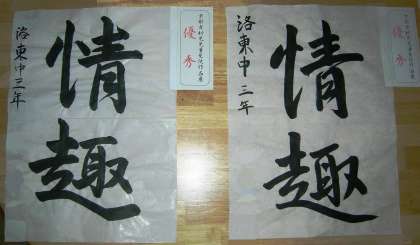 情趣
洛東中三年
優秀
情趣
洛東中三年
優秀